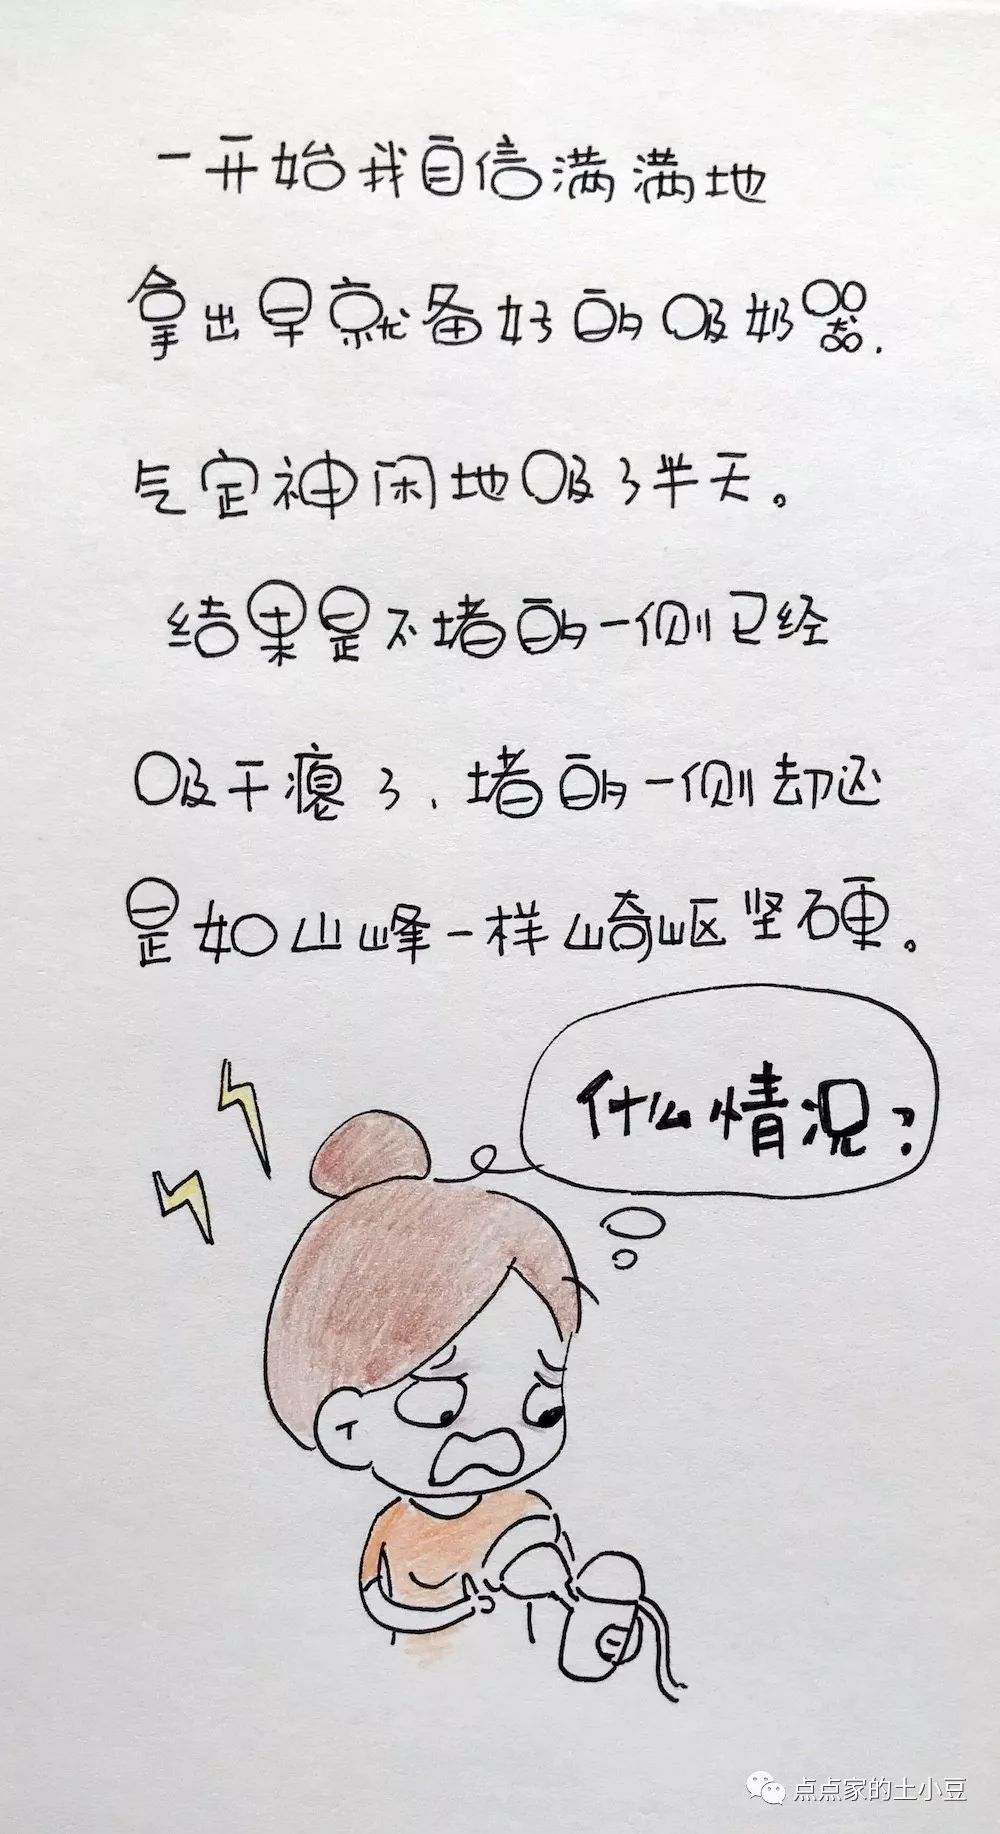 一开始我自信满满地
拿出早就备好的吸奶器.
气定神闲地吸了半天。
结果是不堵的一侧已经
吸干瘪了、堵的一侧却还
是如山峰一样崎岖坚硬。
什么情况?
点点家的土小豆